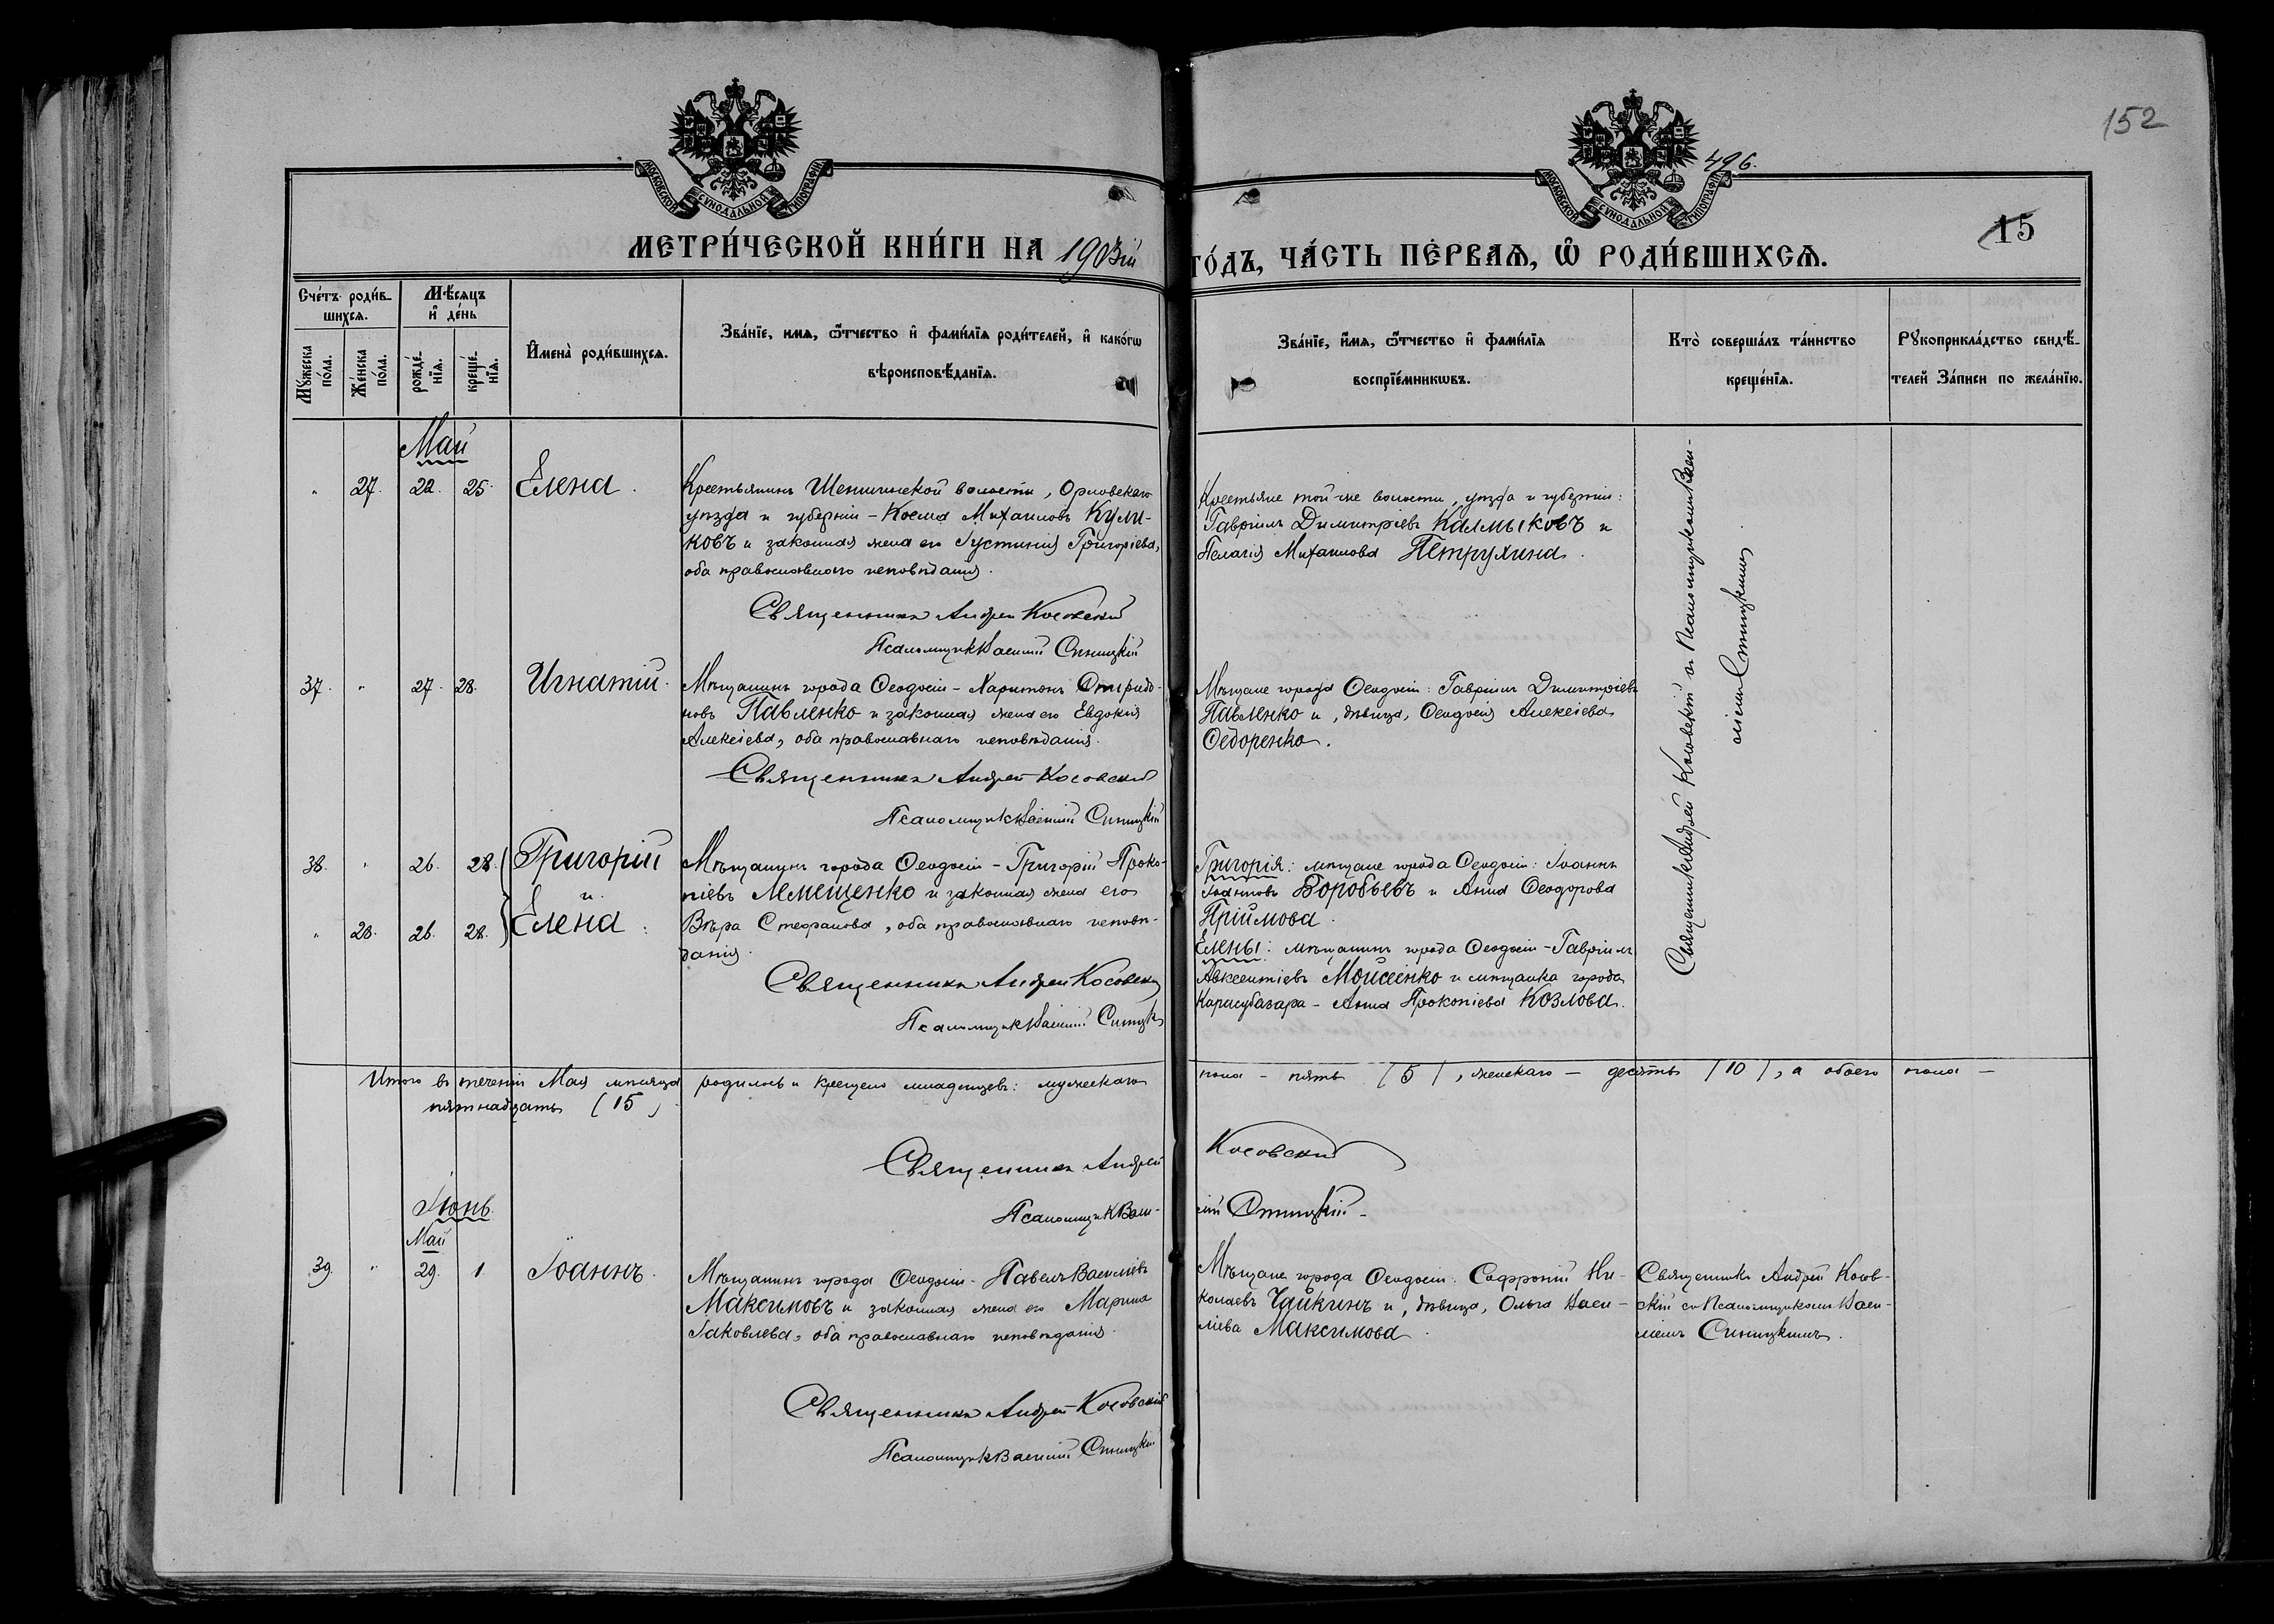 152
496.
МОСКОВСКОЙ СѴНОДАЛЬНОЙ ТИПОГРАФІИ
МОСКОВСКОЙ СѴНОДАЛЬНОЙ ТИПОГРАФІИ
15
МЕТРИ́ЧЕСКОЙ КНИ́ГИ НА 1903ій
ГО́ДЪ, ЧА́СТЬ ПЕ́РВАѦ, Ѡ҆ РОДИ́ВШИХСѦ.
Сче́тъ роди́в-
шихсѧ.
Мꙋ́жеска
по́ла.
Же́нска
по́ла.
Мѣ́сѧцъ
и҆ де́нь
рожде́-
нїѧ.
креще́-
нїѧ.
И҆мена̀ роди́вшихсѧ.
Зва́нїе, имѧ, ѻ҆́тчество и҆ фами́лїѧ роди́телей, и҆ како́гѡ
вѣроисповѣ́данїѧ.
Зва́нїе, и҆́мѧ, ѻ҆́тчество и҆ фами́лїѧ
воспрїе́мникѡвъ.
Кто̀ соверша́лъ та́инство
креще́нїѧ.
Рꙋкоприкла́дство свидѣ́-
телей За́писи по жела́нїю.
Май
" 27. 22. 25. Елена.
Крестьянинъ Шепинской волости, Орловскаго
уѣзда и губерніи – Косма Михаиловъ Кули-
ковъ и законная жена его Іустинія Григоріева,
оба православнаго исповѣданія.
Священникъ Андрей Косовскій
Псаломщикъ Василій Синицкій
Крестьяне той-же волости, уѣзда и губерніи:
Гавріилъ Димитріевъ Калмыковъ и
Пелагія Михаилова Петрухина.
Священникъ Андрей Косовскій съ Псаломщикомъ Васи-
ліемъ Синицкимъ.
37. " 27. 28. Игнатій.
Мѣщанинъ города Ѳеодосіи – Харитонъ Спиридо-
новъ Павленко и законная жена его Евдокія
Алексіева, оба православнаго исповѣданія.
Священникъ Андрей Косовскій
Псаломщикъ Василій Синицкій
Мѣщане города Ѳеодосіи: Гавріилъ Димитріевъ
Павленко и, дѣвица, Ѳеодосія Алексіева
Ѳедоренко.
38. " 26. 28. Григорій
и
" 28. 26. 28. Елена.
Мѣщанинъ города Ѳеодосіи – Григорій Проко-
піевъ Лемещенко и законная жена его
Вѣра Стефанова, оба православнаго исповѣ-
данія.
Священникъ Андрей Косовскій
Псаломщикъ Василій Синицк
Григорія: мѣщане города Ѳеодосіи: Іоаннъ
Іоанновъ Воробьевъ и Анна Ѳеодорова
Пріймова.
Елены: мѣщанинъ города Ѳеодосіи – Гавріилъ
Авксентіевъ Моисеенко и мѣщанка города
Карасубазара – Анна Прокопіева Козлова.
Итого въ теченіи Мая мѣсяца родилось и крещено младенцевъ: мужескаго пола – пять (5), женскаго – десять (10), а обоего пола –
пятнадцать (15)
Священникъ Андрей Косовскій
Псаломщикъ Василій Синицкій
Іюнь.
Май
39. " 29. 1. Іоаннъ.
Мѣщанинъ города Ѳеодосіи – Павелъ Василіевъ
Максимовъ и законная жена его Марина
Іаковлева, оба православнаго исповѣданія.
Священникъ Андрей Косовскій
Псаломщикъ Василій Синицкій
Мѣщане города Ѳеодосіи: Софроній Ни-
колаевъ Чайкинъ и, дѣвица, Ольга Васи-
ліева Максимова.
Священникъ Андрей Косов-
скій съ Псаломщикомъ Васи-
ліемъ Синицкимъ.